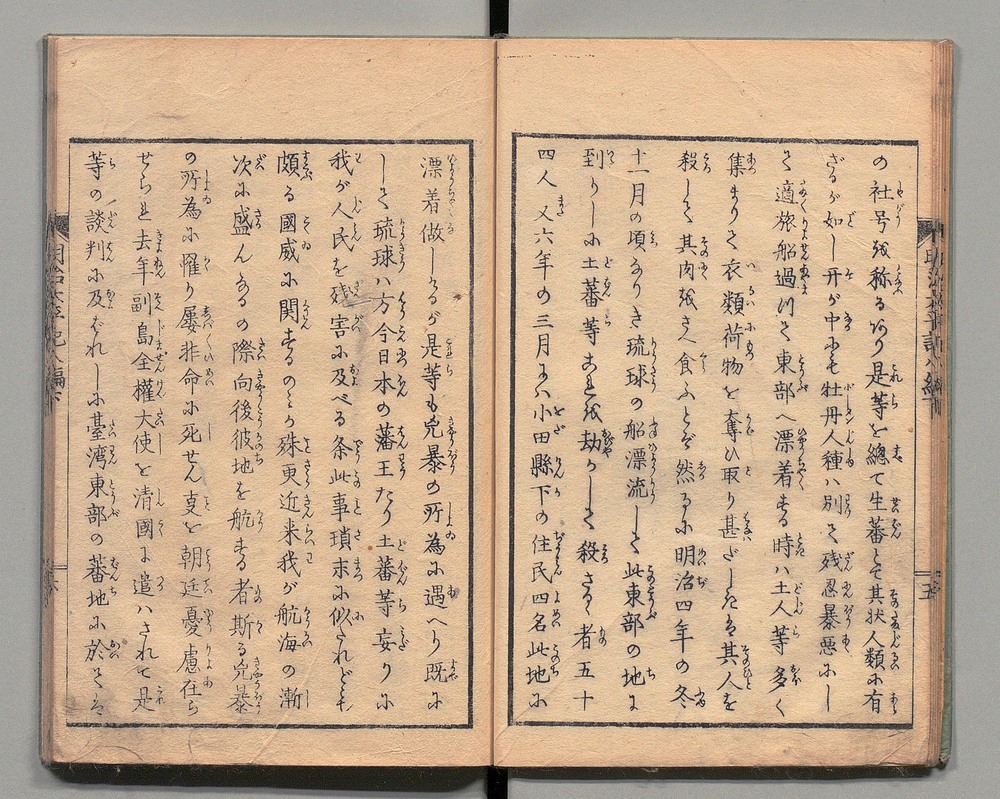 の社号を称るあり是等を總て生蕃とて其状人類に有
ざるが如し开が中にも牡丹人種ハ別て残忍暴悪にし
て適旅船過つて東部へ漂着する時ハ土人等多く
集まりて衣類荷物を奪ひ取り甚だしきは其人を
殺して其肉をさへ食ふとぞ然るに明治四年の冬
十一月の頃なりき琉球の船漂流して此東部の地に
到りしに土蕃等これを劫かして殺さるゝ者五十
四人又六年の三月にハ小田縣下の住民四名此地に
漂着做しゝるが是等も兇暴の所為に遇へり既に
して琉球ハ方今日本の藩王たり土蕃等妄りに
我が人民を残害に及べる条此事瑣末に似たれども
頗る國威に関するのミか殊更近来我が航海の漸
次に盛んなるの際向後彼地を航する者斯る兇暴
の所為に罹り屡非命に死せん事を朝廷憂慮在ら
せられ去年副島全權大使を清國に遣ハされて是
等の談判に及ばれしに臺湾東部の蕃地に於ては